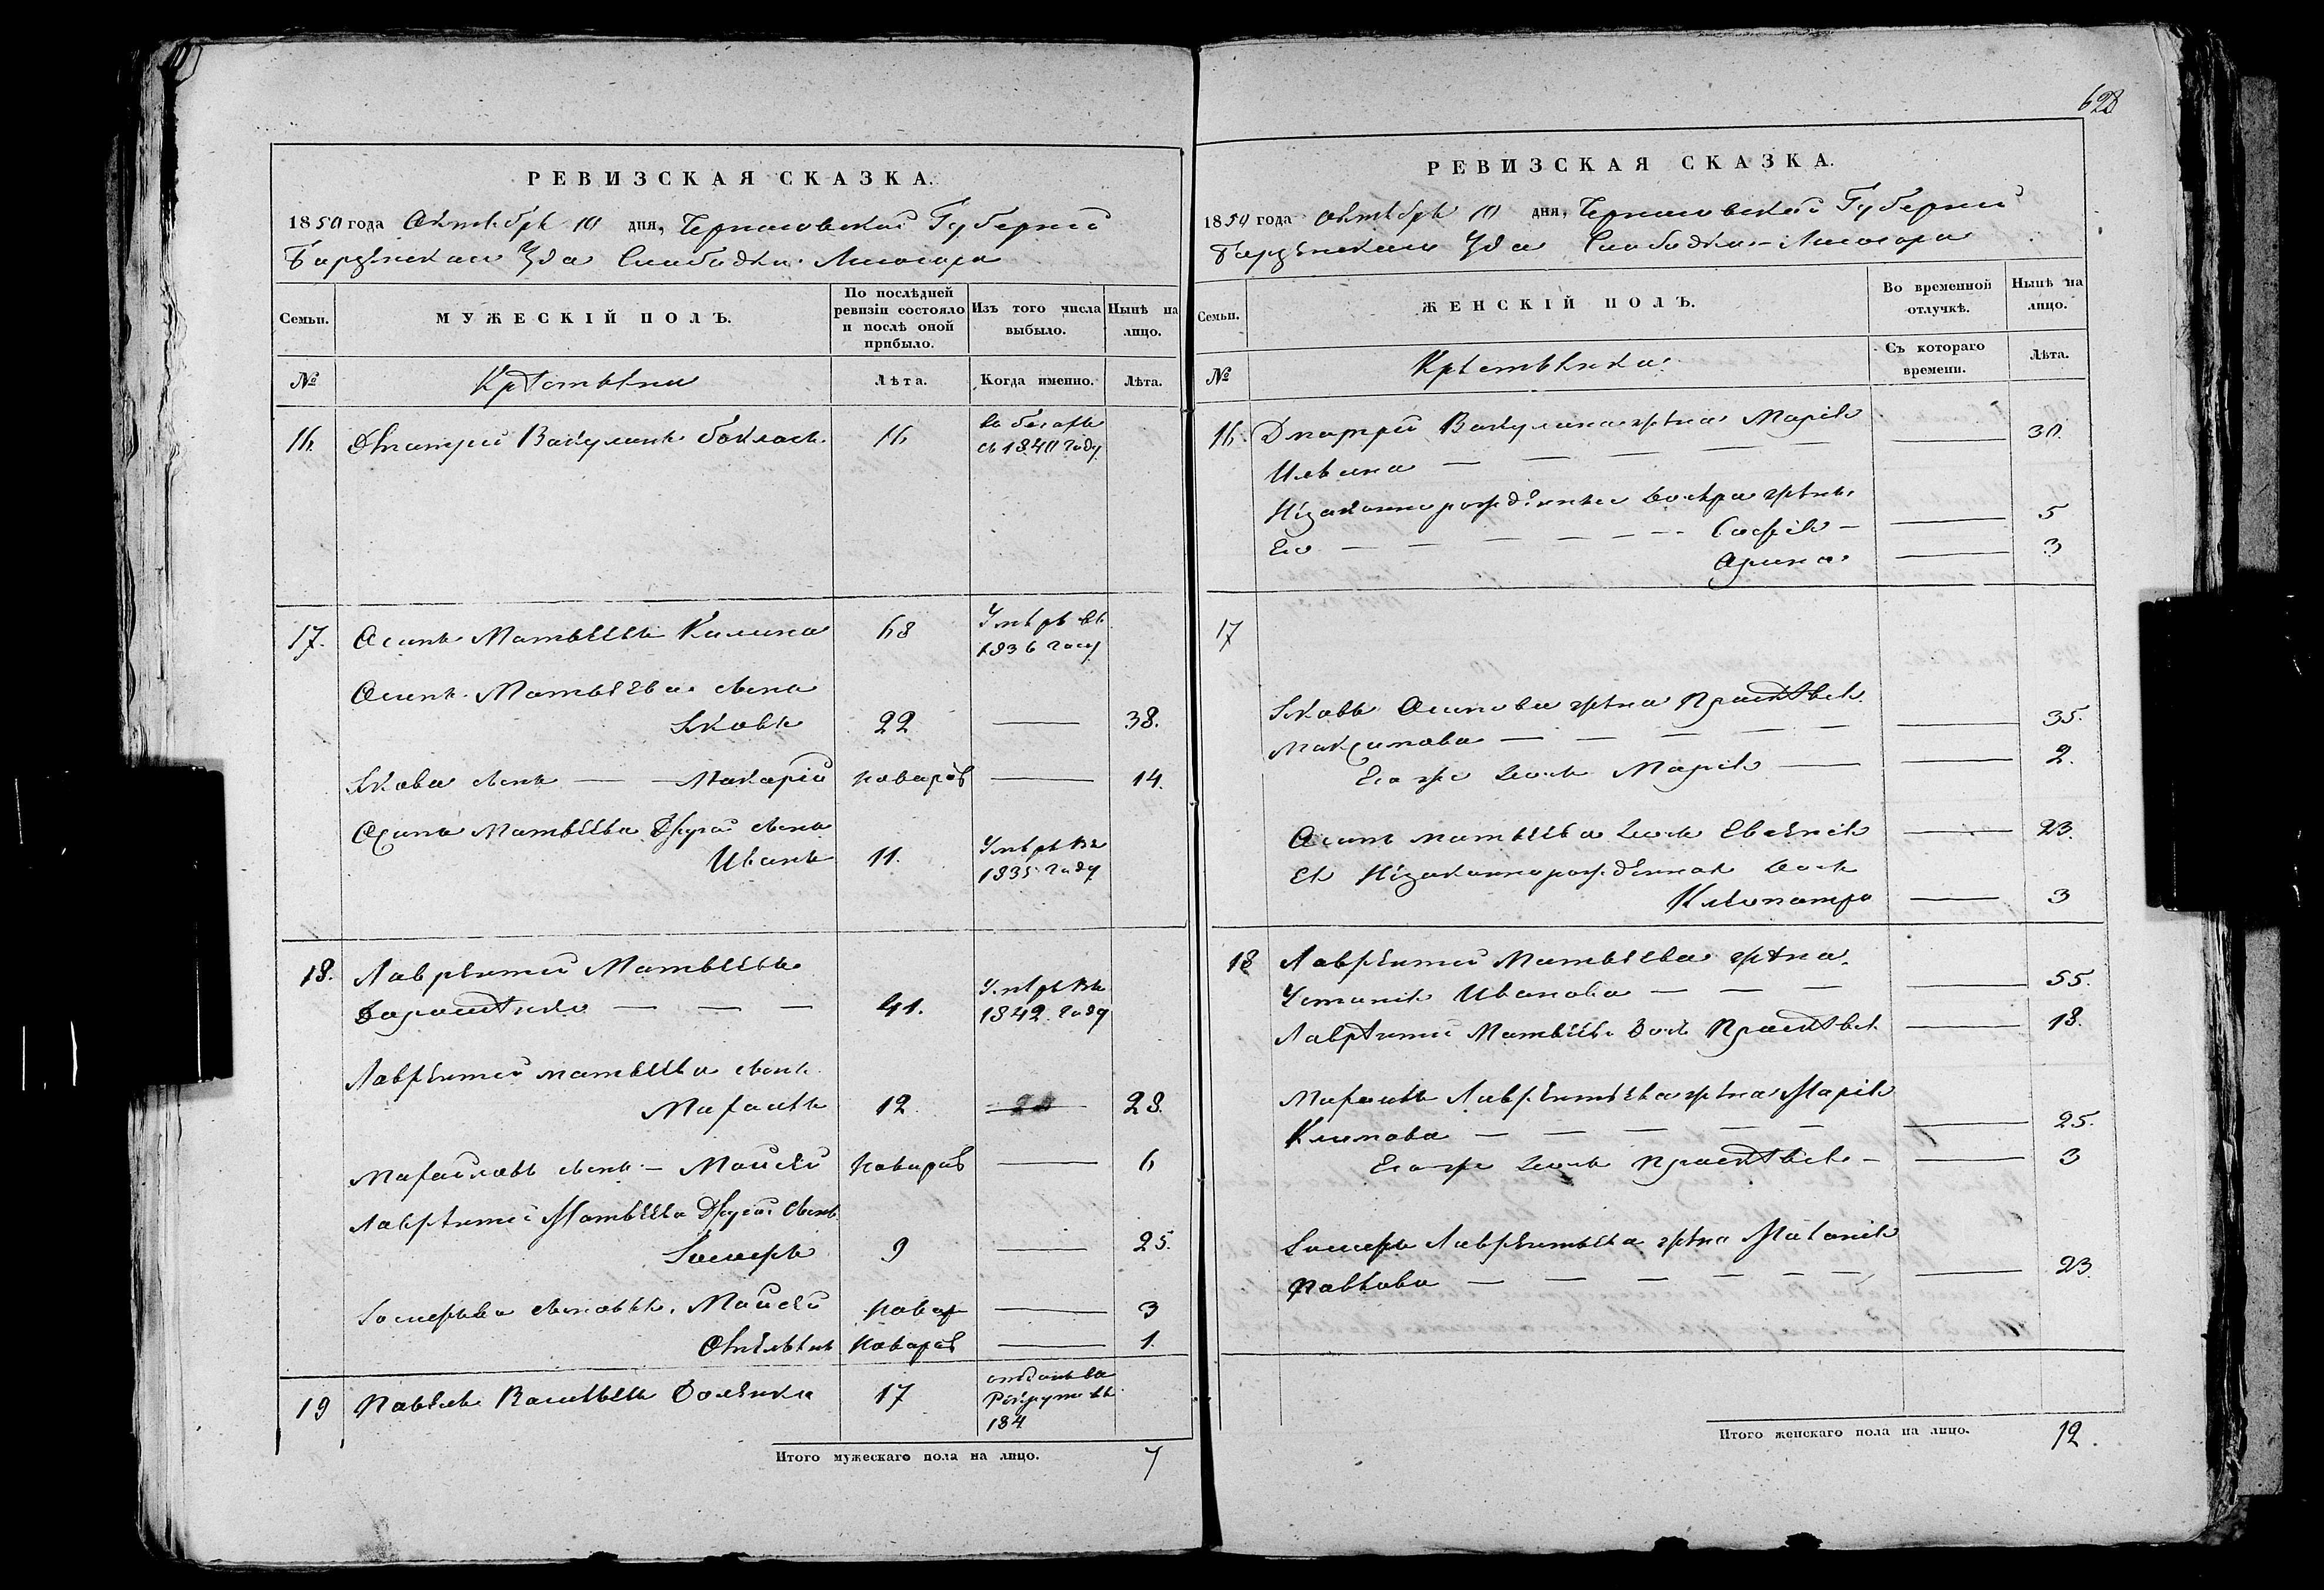 628
РЕВИЗСКАЯ СКАЗКА.
1850 года Октября 10 дня, Черниговской Губернии
Борзенскаго Уезда Слободки Лисогора
Семьи.
МУЖЕСКІЙ ПОЛЪ.
По послѣдней ревизіи состояло и послѣ оной прибыло.
Изъ того числа выбыло.
Нынѣ на лицо.
№
Крестьяни
Лѣта.
Когда именно.
Лѣта.
16. Дмитрий Вакуленко 16 въ бегахъ
съ 1840 году
17. Осипъ Матвѣевъ Калина 68 Умеръ въ
1836 году
Осипа Матвѣева сынъ
Яковъ 22 38.
Якова сынъ Макарій новорож 14.
Осипа Матвѣева Другой сынъ
Иванъ 11. Умеръ въ
1835 году
18. Лаврентий Матвѣевъ
41. Умеръ въ
1842 году
Лаврентия Матвѣева сынъ
12. 28.
сынъ Моисей новорож 6
Лаврентия Матвѣева Другой сынъ
9 25.
сыновья, Моисей новор 3
Емельянъ новорож 1.
19 Павелъ Васильевъ 17 отданъ въ
Рекруты въ
184
Итого мужескаго пола на лицо. 7
РЕВИЗСКАЯ СКАЗКА.
1850 года Октября 10 дня, Черниговской Губернии
Борзенскаго Уезда Слободки Лисогора
Семьи.
ЖЕНСКІЙ ПОЛЪ.
Во временной отлучкѣ.
Нынѣ на лицо.
№
Крестьянки
Съ котораго времени.
Лѣта.
16. Дмитрия Вакуленка жена Марія
Ильина 30.
Незаконнорожденные дочери жены
Его Софія 5
Арина 3
17
Якова Осипова жена Прасковья
Максимова 35.
Его же дочь Марія 2.
Осипа Матвѣева дочь Евгенія 23.
Ея Незаконнорожденная дочь
Клеопатра 3
18 Лаврентия Матвѣева жена
Устинія Иванова 55.
Лаврентия Матвѣева дочь Прасковья 18.
Лаврентьева жена Марія
Климова 25.
Его же дочь Прасковья 3
Лаврентьева жена Меланія
Павлова 23.
Итого женскаго пола на лицо. 12.